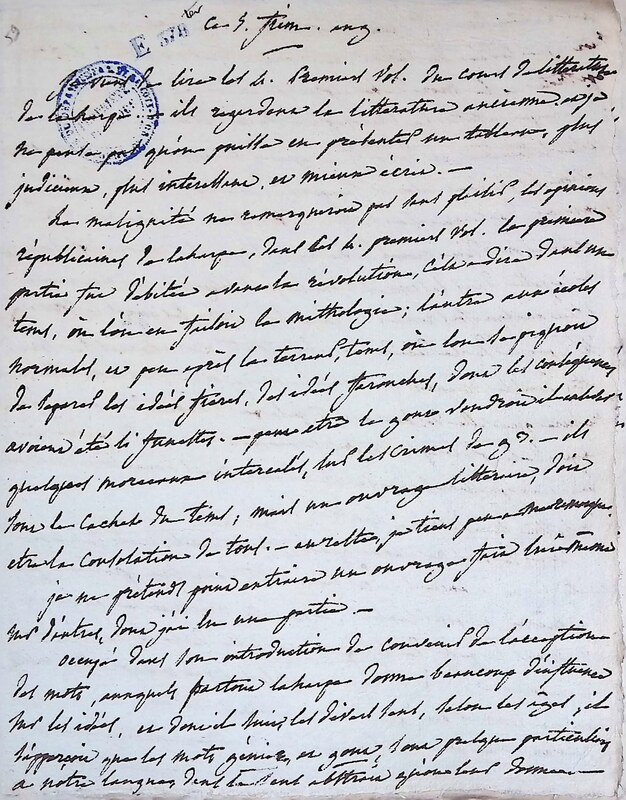 Ce 5. frim. an 9.
E 378 ter
59
de lire les 4. premiers vol. du cours de littérature
de laharpe — ils regardent la littérature ancienne, et je
ne pense pas qu'on puisse en présenter un tableau, plus
judicieux, plus interessant, et mieux écrit. —
La malignité ne remarqueroit pas sans plaisir, les opinions
républicaines de laharpe, dans les 4. premiers vol. la première
partie fut débitée avant la révolution, c'est à dire dans un
tems, où l'on en faisoit la mithologie; l'autre aux écoles
normales, et peu après la terreur, tems, où l'on se piquoit
de séparer les idées fières, des idées farouches, dont les conséquences
avoient été si funestes. — peut etre le gout voudroit il
quelques morceaux intercalés, sur les crimes de 93. — ils
sont le cachet du tems; mais un ouvrage littéraire, doit
etre la consolation de tous. — au reste, je tiens peu a ma remarque,
je ne prétends point extraire un ouvrage fait lui même
sur d'autres, dont j'ai lu une partie. —
occupé dans son introduction de convenir de l'acception
des mots, auxquels partout laharpe donne beaucoup d'influence
sur les idées, et dont il suit les divers sens, selon les âges; il
s'apperçoit que les mots génie, et gout, sont presque particuliers
a notre langue, dans le sens abstrait qu'on leur donne —